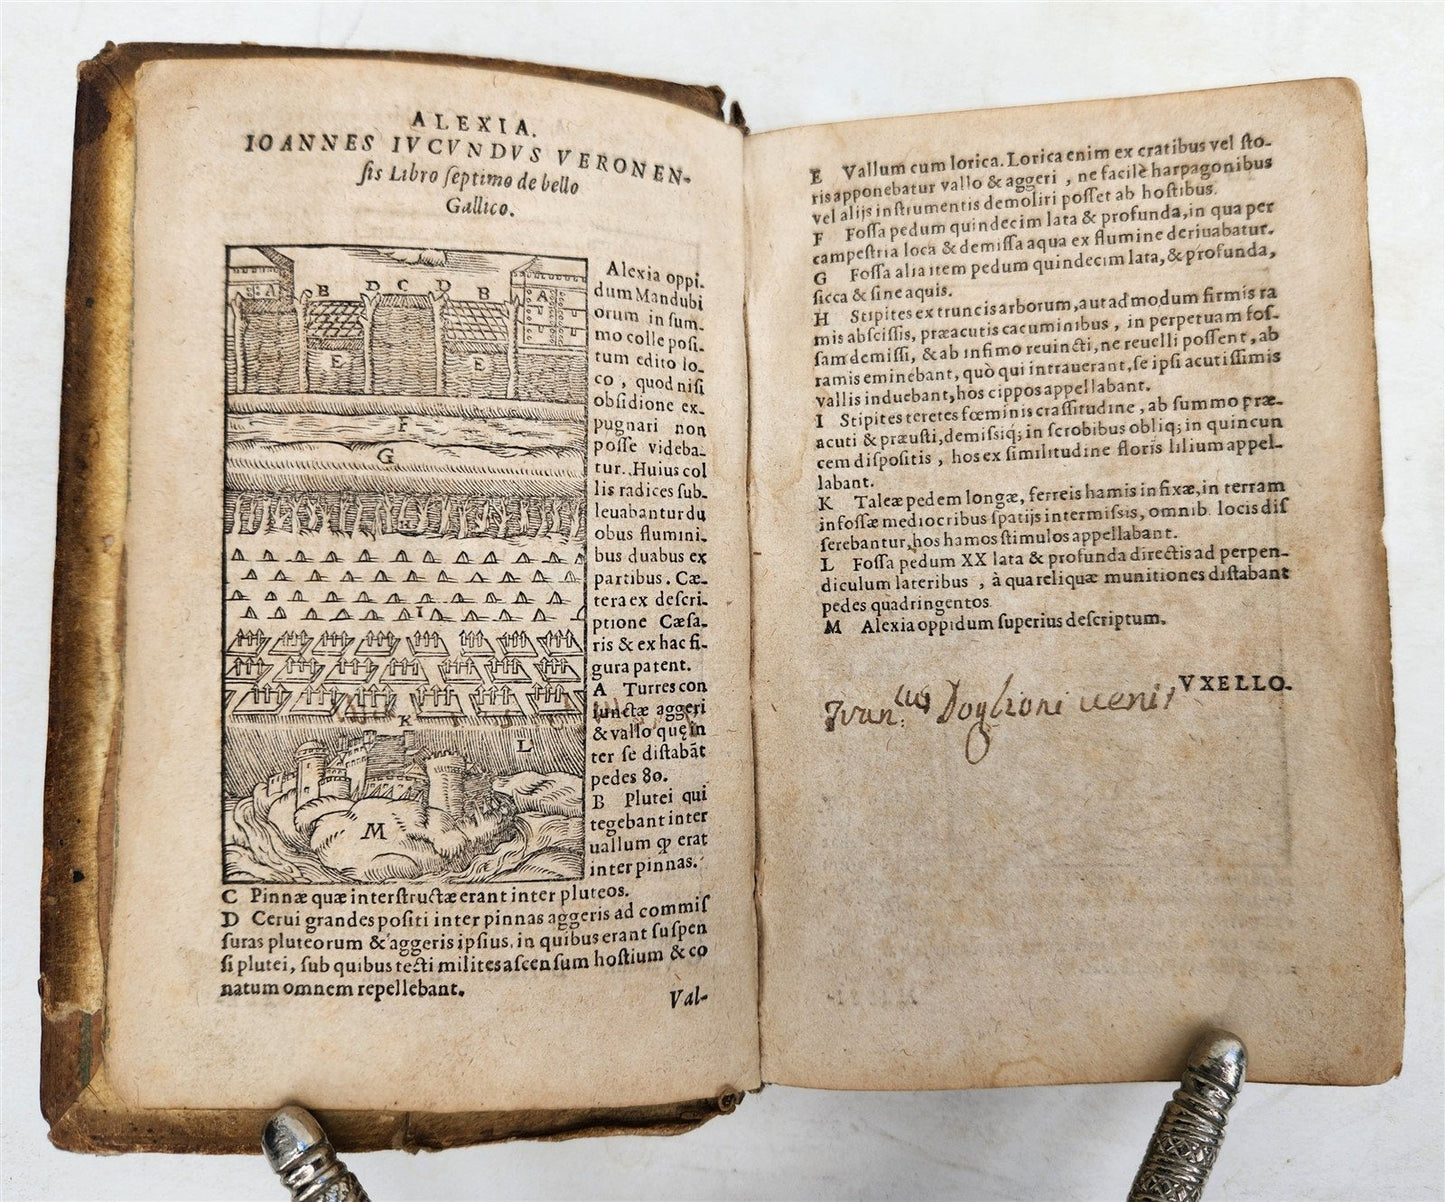 ALEXIA.
IOANNES IVCVNDVS VERONEN-
ſis Libro ſeptimo de bello
Gallico.
A B D C D B A
E E
F
G
H
I
K
L
M
Alexia oppi-
dum Mandubi
orum in ſum-
mo colle poſi-
tum edito lo-
co, quod niſi
obſidione ex-
pugnari non
poſſe videba-
tur. Huius col
lis radices ſub-
leuabantur du
obus flumini-
bus duabus ex
partibus. Cæ-
tera ex deſcri-
ptione Cæſa-
ris & ex hac fi-
gura patent.
A Turres con
iunctæ aggeri
& vallo quę in
ter ſe diſtabãt
pedes 80.
B Plutei qui
tegebant inter
uallum ꝙ erat
inter pinnas.
C Pinnæ quæ interſtructæ erant inter pluteos.
D Cerui grandes poſiti inter pinnas aggeris ad commiſ
ſuras pluteorum & aggeris ipſius, in quibus erant ſuſpen
ſi plutei, ſub quibus tecti milites aſcenſum hoſtium & co
natum omnem repellebant.
Val-
E Vallum cum lorica. Lorica enim ex cratibus vel ſto-
ris apponebatur vallo & aggeri, ne facilè harpagonibus
vel alijs inſtrumentis demoliri poſſet ab hoſtibus.
F Foſſa pedum quindecim lata & profunda, in qua per
campeſtria loca & demiſſa aqua ex flumine deriuabatur.
G Foſſa alia item pedum quindecim lata, & profunda,
ſicca & ſine aquis.
H Stipites ex truncis arborum, aut admodum firmis ra
mis abſciſsis, præacutis cacuminibus, in perpetuam foſ-
ſam demiſſi, & ab infimo reuincti, ne reuelli poſſent, ab
ramis eminebant, quò qui intrauerant, ſe ipſi acutiſſimis
vallis induebant, hos cippos appellabant.
I Stipites teretes fœminis craſſitudine, ab ſummo præ-
acuti & præuſti, demiſsiq; in ſcrobibus obliq; in quincun
cem diſpoſitis, hos ex ſimilitudine floris lilium appel-
labant.
K Taleæ pedem longæ, ferreis hamis infixæ, in terram
infoſſæ mediocribus ſpatijs intermiſsis, omnib. locis diſ
ſerebantur, hos hamos ſtimulos appellabant.
L Foſſa pedum XX lata & profunda directis ad perpen-
diculum lateribus, à qua reliquæ munitiones diſtabant
pedes quadringentos
M Alexia oppidum ſuperius deſcriptum.
VXELLO-
Doglioni